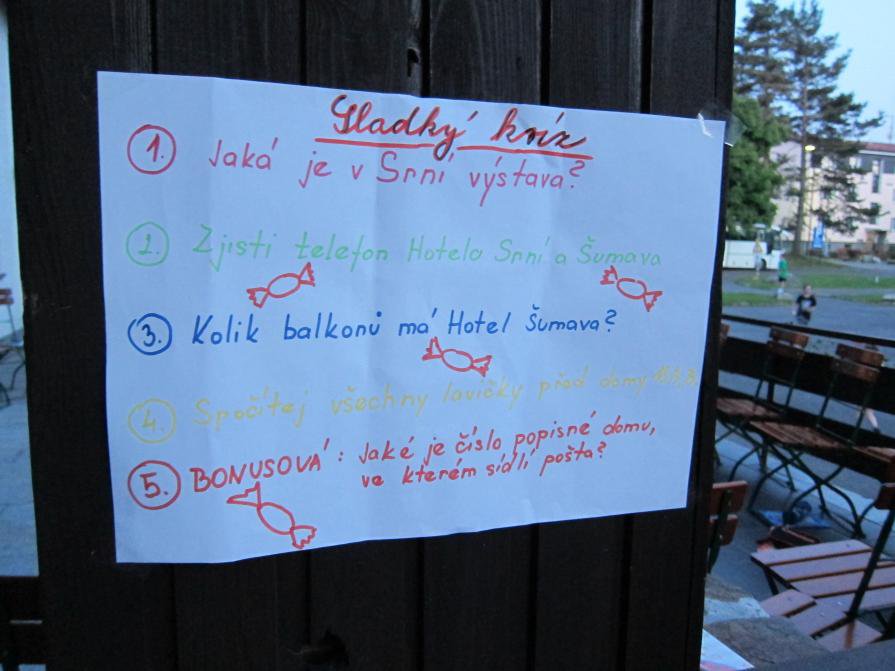 Sladký kvíz
1. Jaká je v Srní výstava?
2. Zjisti telefon Hotelo Srní a Šumava
3. Kolik balkonů má Hotel Šumava?
4. Spočítej všechny lavičky před domy
5. BONUSOVÁ: Jaké je číslo popisné domu,
ve kterém sídlí pošta?